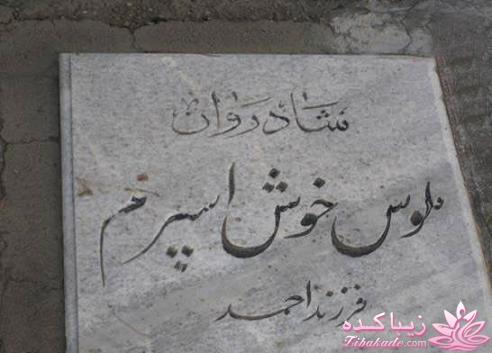 شادروان
طوس خوش اسپرم
فرزند احمد
زیباکده
Tibakade.com